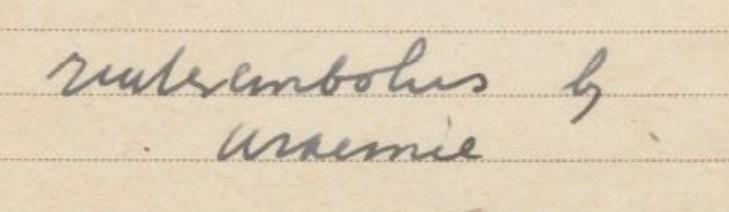 ruiterembolus by
uraemie